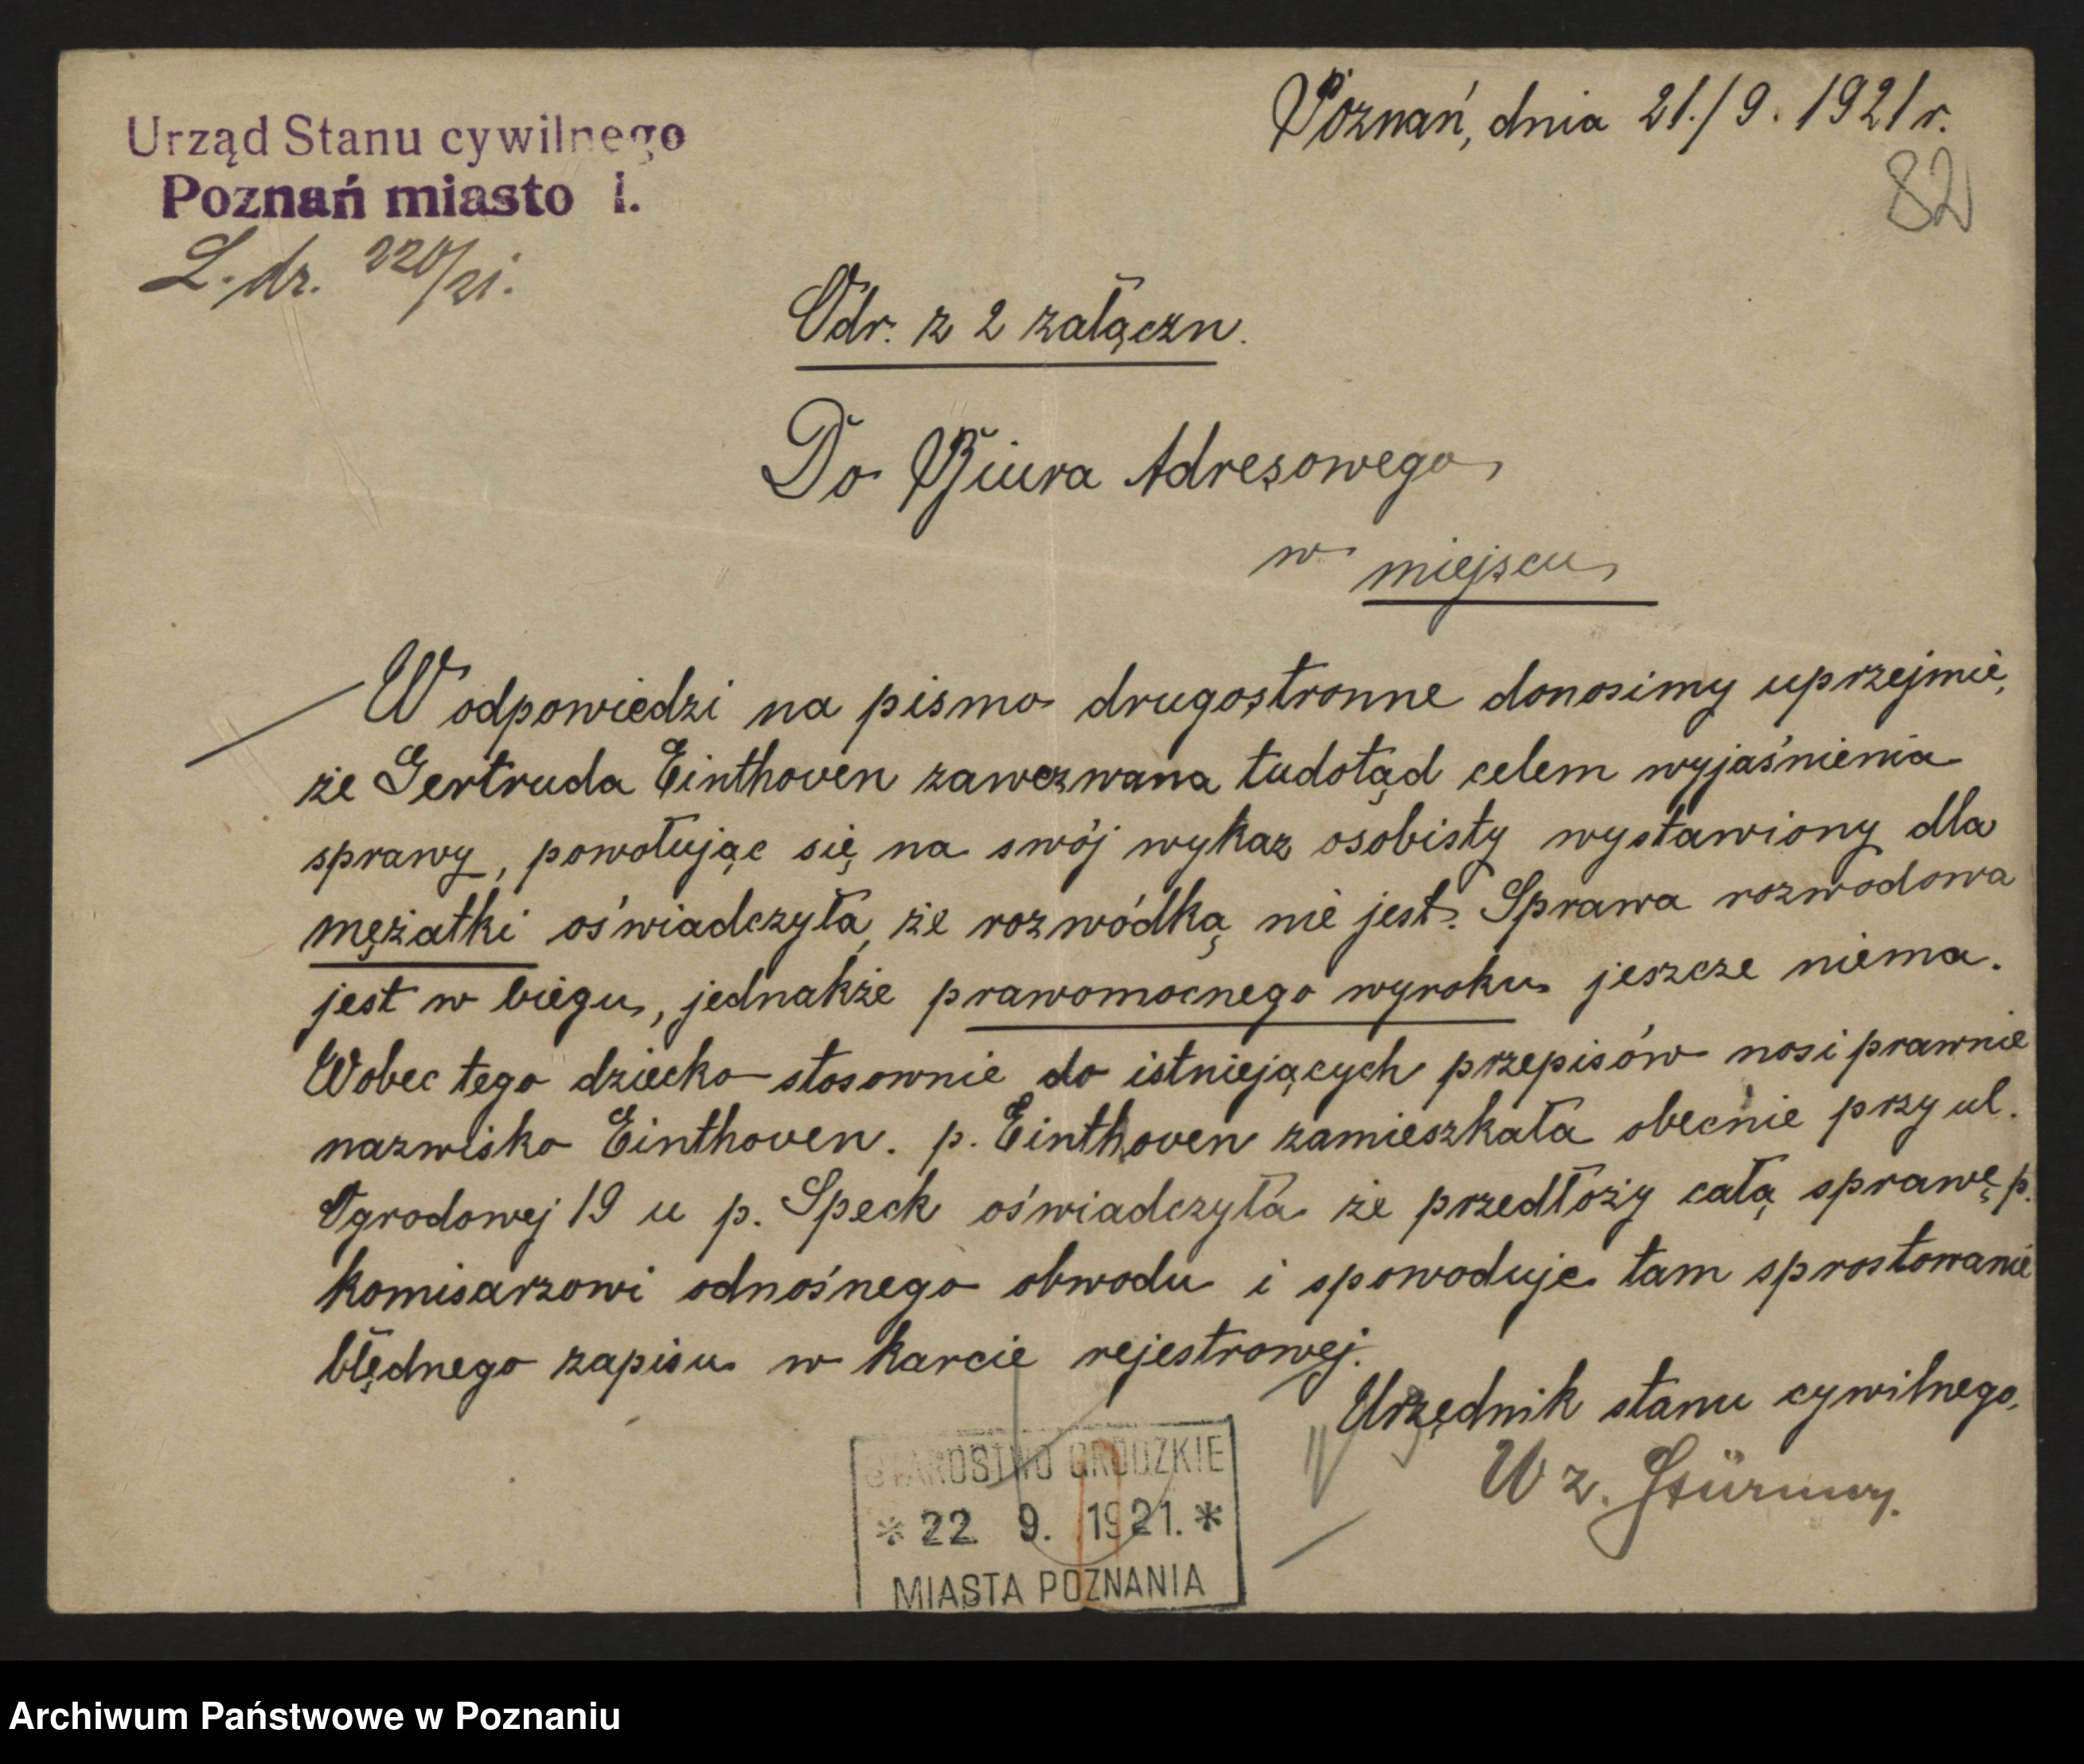 Poznań, dnia 21./9. 1921 r.
82
Urząd Stanu cywilnego
Poznań miasto I.
L. dz. 220/21.
Odr. z 2 załączn.
Do Biura Adresowego
w miejscu
W odpowiedzi na pismo drugostronne donosimy uprzejmie,
że Gertruda Einthoven zawezwana tudotąd celem wyjaśnienia
sprawy, powołując się na swój wykaz osobisty wystawiony dla
mężatki oświadczyła, że rozwódką nie jest. Sprawa rozwodowa
jest w biegu, jednakże prawomocnego wyroku jeszcze niema.
Wobec tego dziecko stosownie do istniejących przepisów nosi prawnie
nazwisko Einthoven. p. Einthoven zamieszkała obecnie przy ul.
Ogrodowej 19 u p. Speck oświadczyła że przedłoży całą sprawę p.
komisarzowi odnośnego obwodu i spowoduje tam sprostowanie
błędnego zapisu w karcie rejestrowej.
Urzędnik stanu cywilnego.
W z.
STAROSTWO GRODZKIE
* 22 9. 1921. *
MIASTA POZNANIA
Archiwum Państwowe w Poznaniu